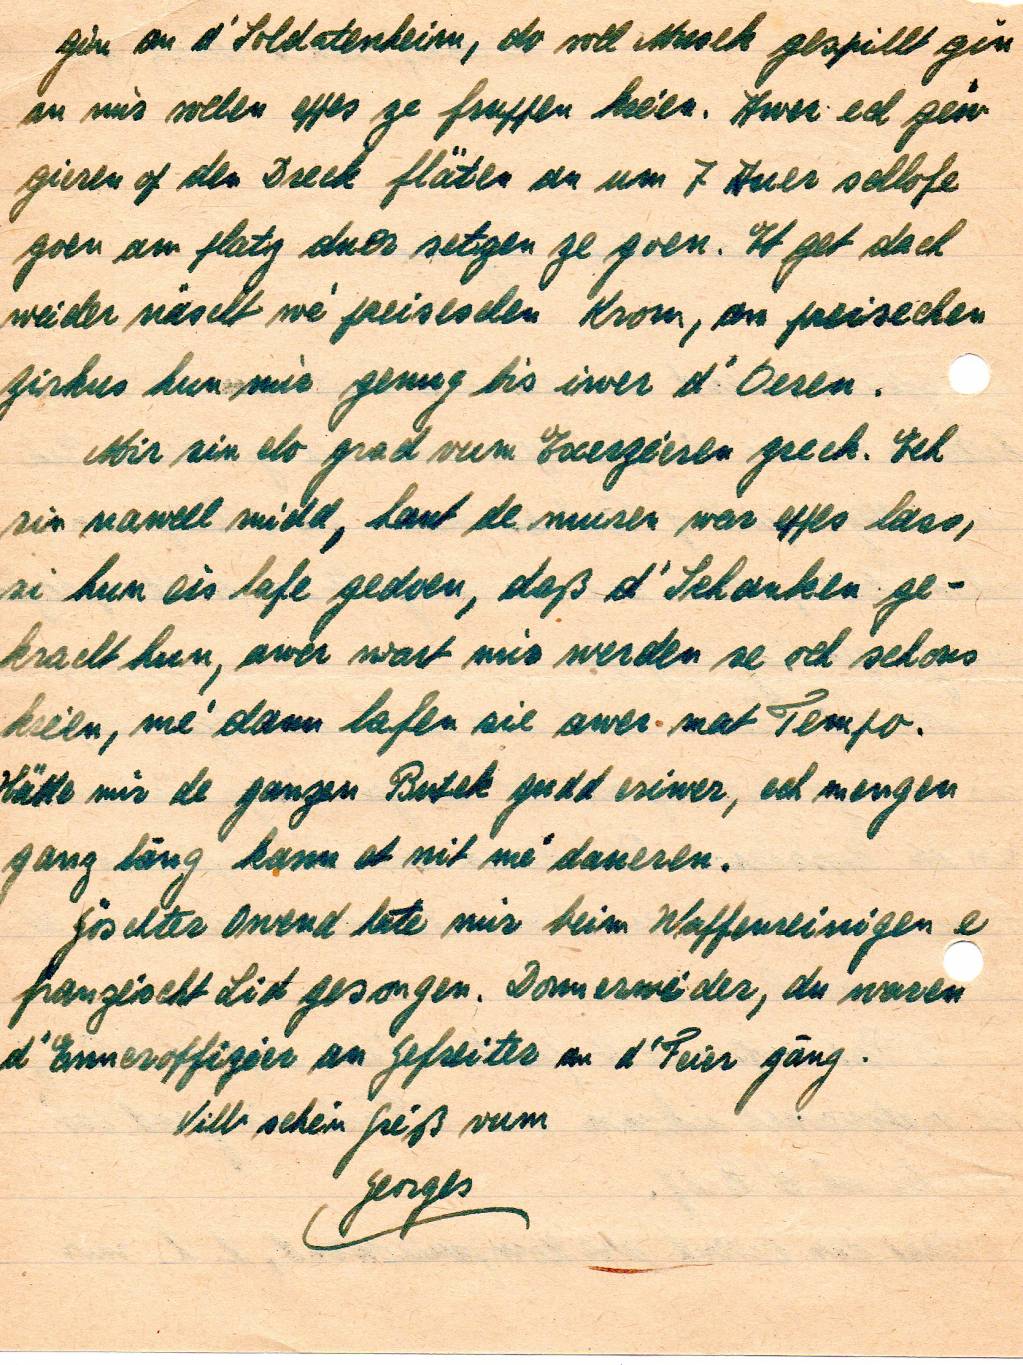 gin an d'Soldatenheim, do soll Musek gespillt gin
an mir sollen eppes ze fruppen kréien. Awer ech géiw
gieren op den Dreck fläten an um 7 Auer schlofe
goen am platz duer setzen ze goen. Et get dach
weider näscht wé preiseschen Krom, an preisechen
Zirkus hun mir genug bis iwer d'Oesen.
Mir sin elo grad vum Exerzéieren zreck. Ech
sin nawell midd, haut de muren war eppes lass,
si hun eis lafe gedoen, daß d'Schanken ge-
kracht hun, awer wart mir werden se och schons
kréien, mé dann lafen sie awer mat Tempo.
Hätte mir de ganzen Butek gudd eriwer, ech mengen
ganz läng kann et nit mé daueren.
Göschter Owend hate mir beim Waffenreinigen e
franzéischt Lid gesongen. Donnerwéider, du waren
d'Enneroffizéier an Gefreiter an d'Feier gäng.
Vill schéin Gréiß vum
Georges